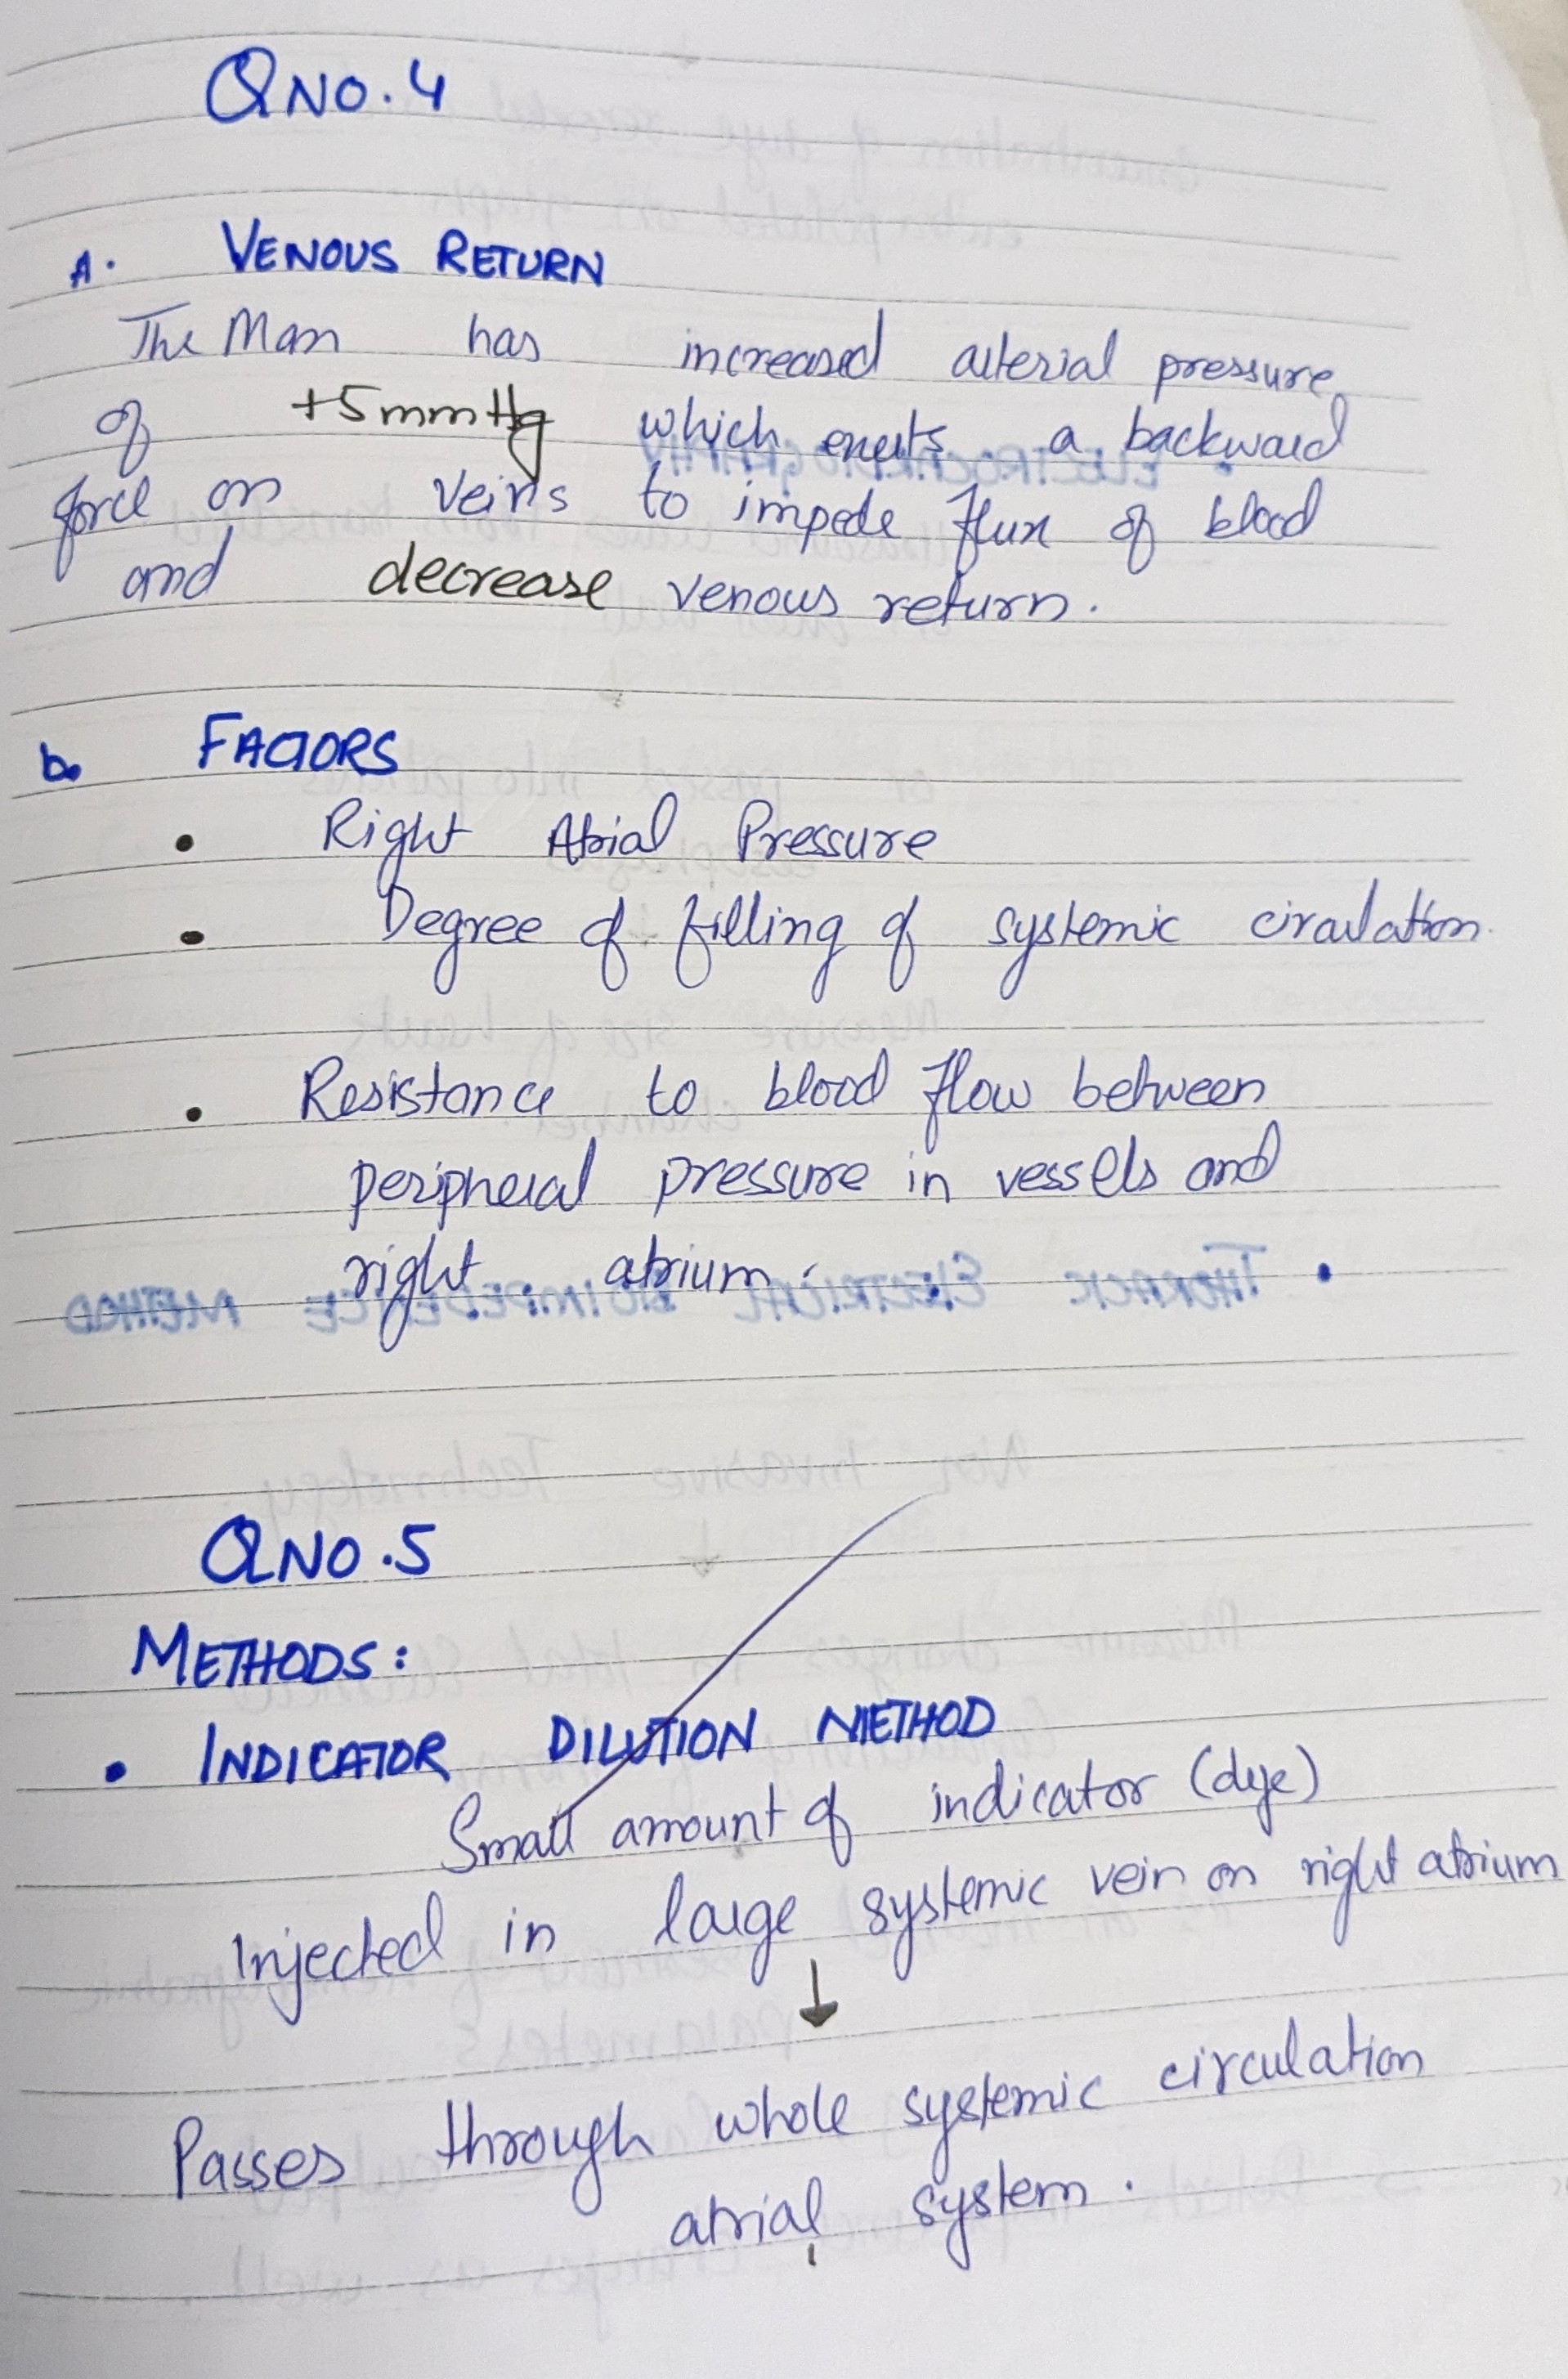 QNO.4
A. VENOUS RETURN
The Man has increased arterial pressure
of +5mmHg which exerts a backward
force on veins to impede flux of blood
and decrease venous return.
b. FACTORS
• Right Atrial Pressure
• Degree of filling of systemic circulation.
• Resistance to blood flow between
peripheral pressure in vessels and
right atrium.
QNO.5
METHODS:
• INDICATOR DILUTION METHOD
Small amount of indicator (dye)
Injected in large systemic vein on right atrium
↓
Passes through whole systemic circulation
atrial system.